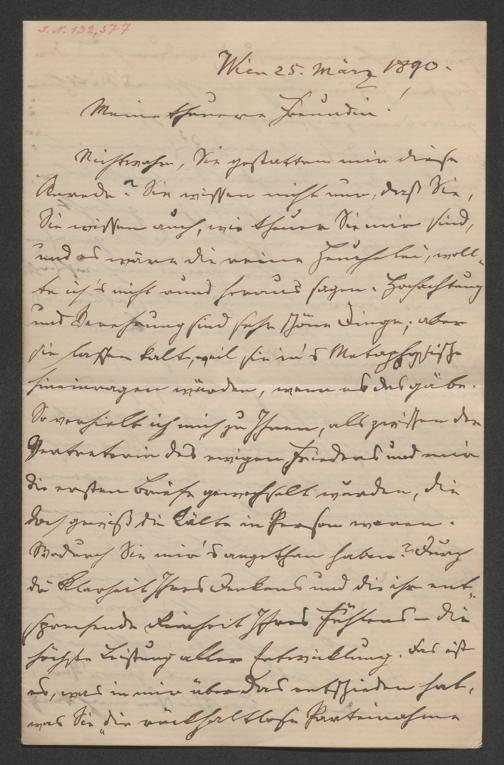 J. N. 132,577
Wien 25. März 1890.
Meine theuerere Freundin!
Nichtwahr, Sie gestatten mir diese
Anrede? Sie wissen nicht nur, daß Sie,
Sie wissen auch, wie theuer Sie mir sind,
und es wäre die reine Heuchelei, woll-
te ich's nicht rund heraus sagen. Hochachtung
und Verehrung sind sehr schöne Dinge; aber
sie lassen kalt, weil sie in's Metaphysische
hineinragen würden, wenn es das gäbe.
So verhielt ich mich zu Ihnen, als zwischen der
Vertreterin des ewigen Friedens und mir
die ersten Briefe gewechselt wurden, die
doch gewiß die Kälte in Person waren.
Wodurch Sie mir's angethan haben? Durch
die Klarheit Ihres Denkens und die ihr ent-
sprechende Reinheit Ihres Fühlens – die
höchste Leistung aller Entwicklung. Das ist
es, was in mir über das entschieden hat,
was Sie „die rückhaltlose Parteinahme